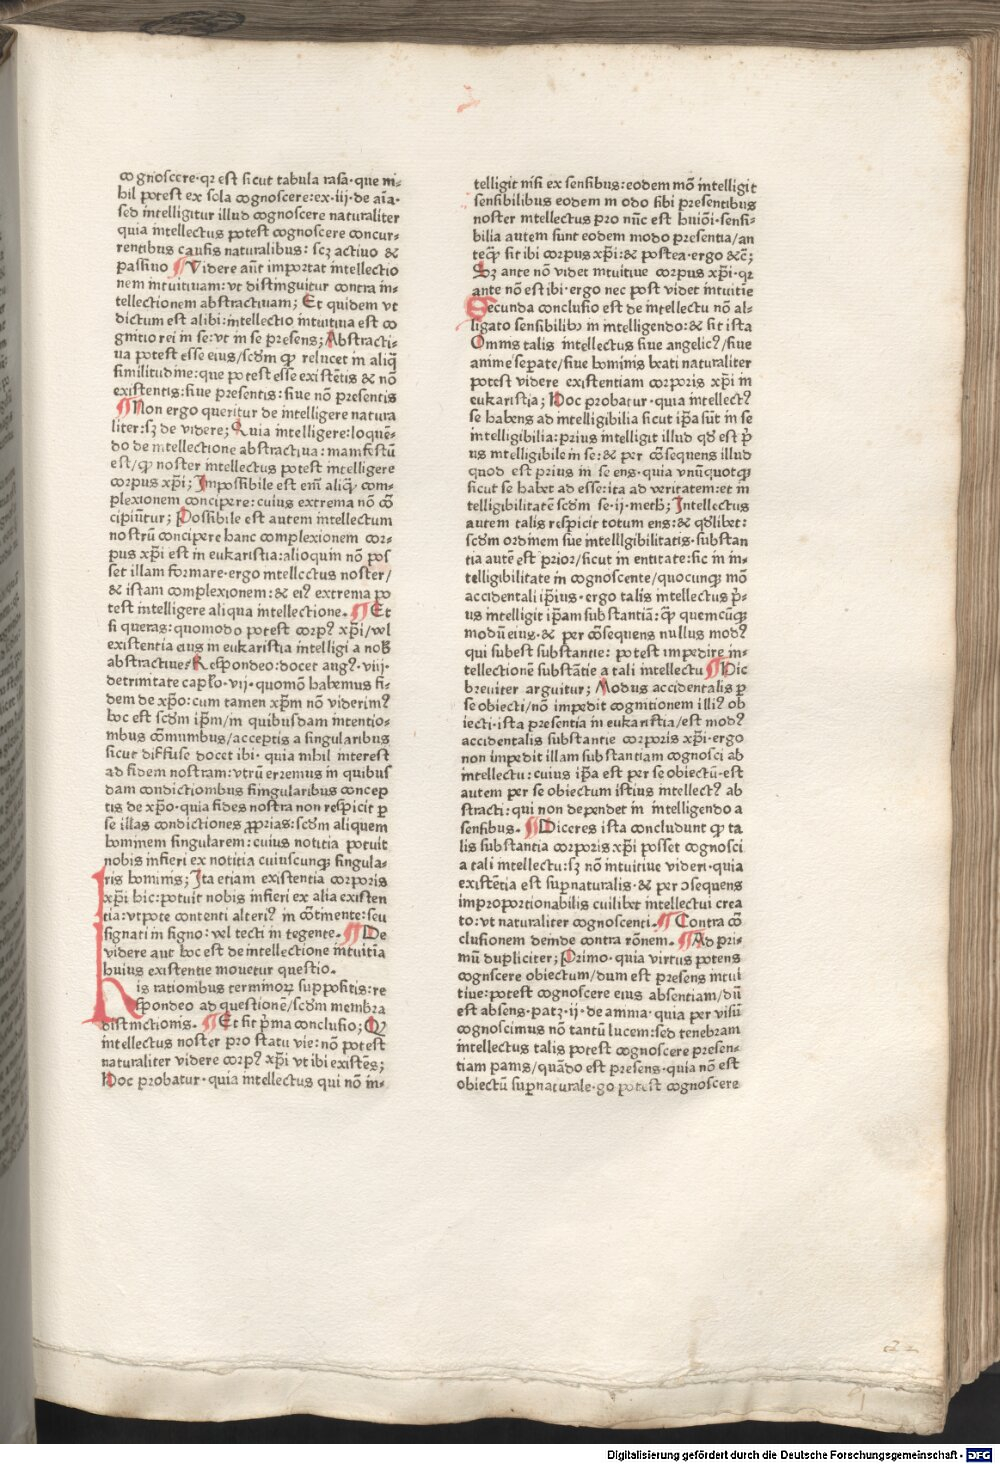 cognoscere·qꝛ est sicut tabula rasa·que ni⸗
hil potest ex sola cognoscere:ex·iij·de aīa·
sed intelligitur illud cognoscere naturaliter
quia intellectus potest cognoscere concur⸗
rentibus causis naturalibus: scꝫ actiuo &
passiuo ¶Videre aūt importat intellectio
nem intuitiuam: vt distinguitur contra in⸗
tellectionem abstractiuam; Et quidem vt
dictum est alibi:intellectio intuitiua est co
gnitio rei in se:vt in se presens;Abstracti⸗
ua potest esse eius/scd̄m ꝙ relucet in aliq̄
similitudine:que potest esse existētis & nō
existentis:siue presentis:siue nō presentis
¶Non ergo queritur de intelligere natura
liter:sꝫ de videre; Quia intelligere:loquē⸗
do de intellectione abstractiua: manifestū
est/ꝙ noster intellectus potest intelligere
corpus xp̄i; Impossibile est em̄ aliq̄ com⸗
plexionem concipere: cuius extrema nō cō
cipiūtur; Possibile est autem intellectum
nostrū concipere hanc complexionem cor⸗
pus xp̄i est in eukaristia:alioquin nō pos
set illam formare·ergo intellectus noster/
& istam complexionem:& eiꝰ extrema po
test intelligere aliqua intellectione. ¶Et
si queras:quomodo potest corpꝰ xp̄i/vel
existentia eius in eukaristia intelligi a nob̄
abstractiue? Respondeo:docet augꝰ·viij·
detrinitate cap̄lo·vij·quomō habemus fi⸗
dem de xp̄o:cum tamen xp̄m nō viderimꝰ
hoc est scd̄m ip̄m/in quibusdam intentio⸗
nibus cōmunibus/acceptis a singularibus
sicut diffuse docet ibi·quia nihil interest
ad fidem nostram:vtrū erremus in quibus
dam condictionibus singularibus concep
tis de xp̄o·quia fides nostra non respicit p̱
se illas condictiones ꝓprias:scd̄m aliquem
hominem singularem:cuius notitia potuit
nobis infieri ex notitia cuiuscunqꝫ singula⸗
ris hominis; Ita etiam existentia corporis
xp̄i hic:potuit nobis infieri ex alia existen
tia:vtpote contenti alteriꝰ in cōtinente:seu
signati in signo:vel tecti in tegente. ¶De
videre aut hoc est de intellectione intuitiua
huius existentie mouetur questio.
his rationibus terminoꝝ suppositis:re
spondeo ad questionē/scd̄m membra
distinctionis. ¶Et sit p̄ma conclusio; Qꝙ
intellectus noster pro statu vie:nō potest
naturaliter videre corpꝰ xp̄i vt ibi existēs;
Hoc probatur·quia intellectus qui nō in⸗
telligit nisi ex sensibus:eodem mō intelligit
sensibilibus eodem modo sibi presentibus
noster intellectus pro nūc est huiōi·sensi⸗
bilia autem sunt eodem modo presentia/an
teq̄ꝫ sit ibi corpus xp̄i:& postea·ergo &c̄;
Sꝫ ante nō videt intuitiue corpus xp̄i·qꝛ
ante nō est ibi·ergo nec post videt intuitie
Secunda conclusio est de intellectu nō al⸗
ligato sensibilibꝰ in intelligendo:& sit ista
Omnis talis intellectus siue angelicꝰ/siue
anime sep̱ate/siue hominis beati naturaliter
potest videre existentiam corporis xp̄i in
eukaristia; Hoc probatur·quia intellectꝰ
se habens ad intelligibilia sicut ip̄a sūt in se
intelligibilia:prius intelligit illud qd̄ est p̄
us intelligibile in se:& per cōsequens illud
quod est prius in se ens·quia vnūquotqꝫ
sicut se habet ad esse:ita ad veritatem:et in
telligibilitatē scd̄m se·ij·metħ; Intellectus
autem talis respicit totum ens:& qd̄libet:
scd̄m ordinem sue intelllgibilitatis·substan
tia autē est prior/sicut in entitate:sic in in⸗
telligibilitate in cognoscente/quocunqꝫ mō
accidentali ip̄ius·ergo talis intellectus p̄⸗
us intelligit ip̄am substantiā:q̄ꝫ quemcūqꝫ
modū eius·& per cōsequens nullus modꝰ
qui subest substantie: potest impedire in⸗
tellectionē substātie a tali intellectu ¶Hic
breuiter arguitur; Modus accidentalis p̱
se obiecti/nō impedit cognitionem illiꝰ ob
iecti·ista presentia in eukaristia/est modꝰ
accidentalis substantie corporis xp̄i·ergo
non impedit illam substantiam cognosci ab
intellectu: cuius ip̄a est per se obiectū·est
autem per se obiectum istius intellectꝰ ab
stracti: qui non dependet in intelligendo a
sensibus. ¶Diceres ista concludunt ꝙ ta
lis substantia corporis xp̄i posset cognosci
a tali intellectu:sꝫ nō intuitiue videri·quia
existētia est sup̱naturalis·& per ↄsequens
improportionabilis cuilibet intellectui crea
to:vt naturaliter cognoscenti. ¶Contra cō
clusionem deinde contra rōnem. ¶Ad pri⸗
mū dupliciter; Primo·quia virtus potens
cognscere obiectum/dum est presens intui
tiue:potest cognoscere eius absentiam/dū
est absens·patꝫ·ij·de anima·quia per visū
cognoscimus nō tantū lucem:sed tenebram
intellectus talis potest cognoscere presen⸗
tiam panis/quādo est presens·quia nō est
obiectū sup̱naturale·go potest cognoscere
Digitalisierung gefördert durch die Deutsche Forschungsgemeinschaft - DFG